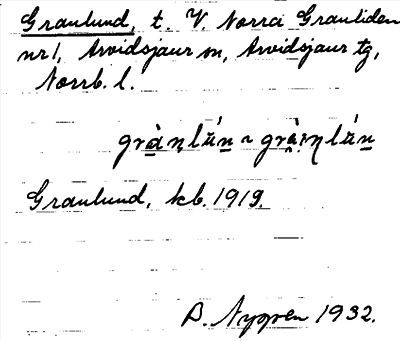 Granlund, t. V. Norra Granliden
nr 1, Arvidsjaur sn, Arvidsjaur tg,
Norrb. l.
Granlund, kb. 1919.
B. Nygren 1932.